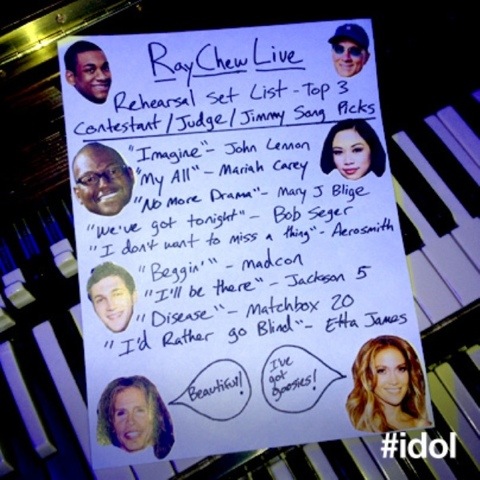 Ray Chew Live
Rehearsal Set List - Top 3
Contestant / Judge / Jimmy Song Picks
"Imagine" - John Lennon
"My All" - Mariah Carey
"No More Drama" - Mary J Blige
"We've got tonight" - Bob Seger
"I don't want to miss a thing" - Aerosmith
"Beggin'" - madcon
"I'll be there" - Jackson 5
"Disease" - Matchbox 20
"I'd Rather go Blind" - Etta James
Beautiful!
I've
got
goosies!
#idol